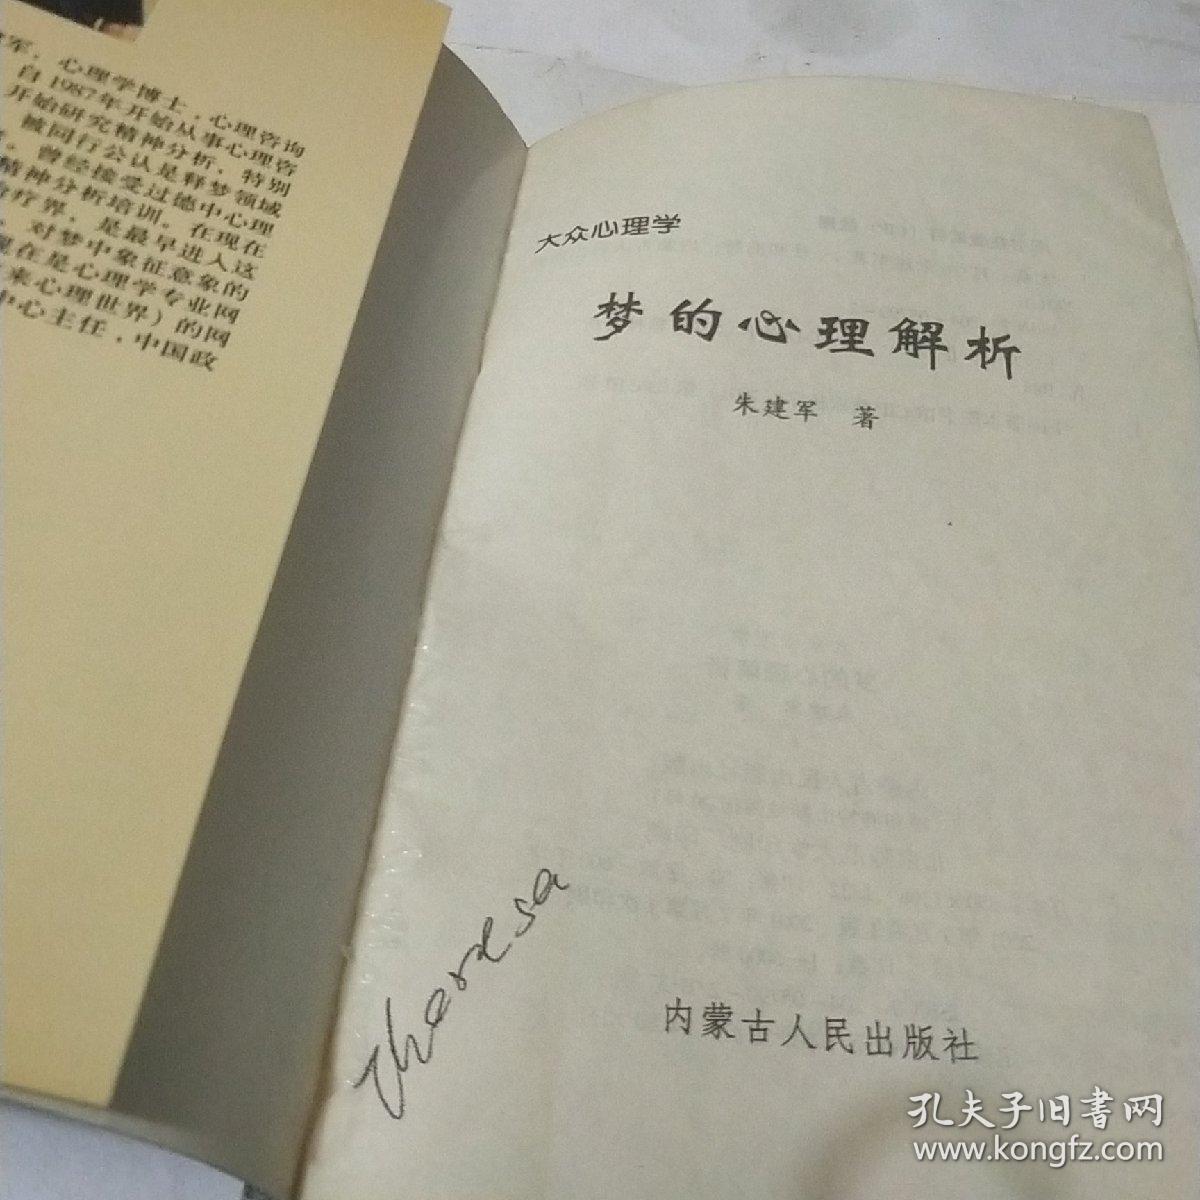 军，心理学博士，心理咨询
自1987年开始从事心理咨
开始研究精神分析，特别
被同行公认是释梦领域
。曾经接受过德中心理
精神分析培训。在现在
疗界，是最早进入这
，对梦中象征意象的
现在是心理学专业网
来心理世界）的网
中心主任，中国政
大众心理学
梦的心理解析
朱建军 著
theresa
内蒙古人民出版社
孔夫子旧书网
www.kongfz.com